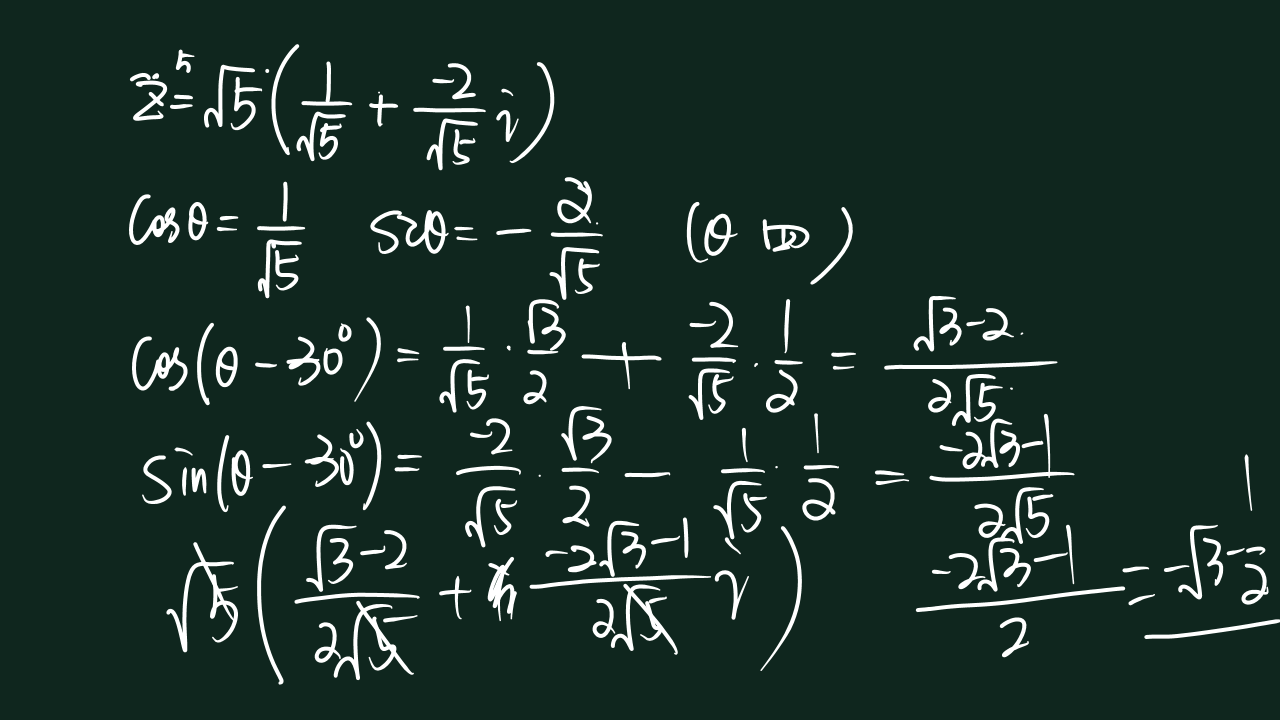 z̅ = √5 (1/√5 + -2/√5 i)
cosθ = 1/√5 sinθ = - 2/√5 (θ IV)
cos(θ - 30°) = 1/√5 · √3/2 + -2/√5 · 1/2 = √3-2/2√5
sin(θ - 30°) = -2/√5 · √3/2 - 1/√5 · 1/2 = -2√3-1/2√5
√5 (√3-2/2√5 + -2√3-1/2√5 i) -2√3-1/2 = -√3-1/2